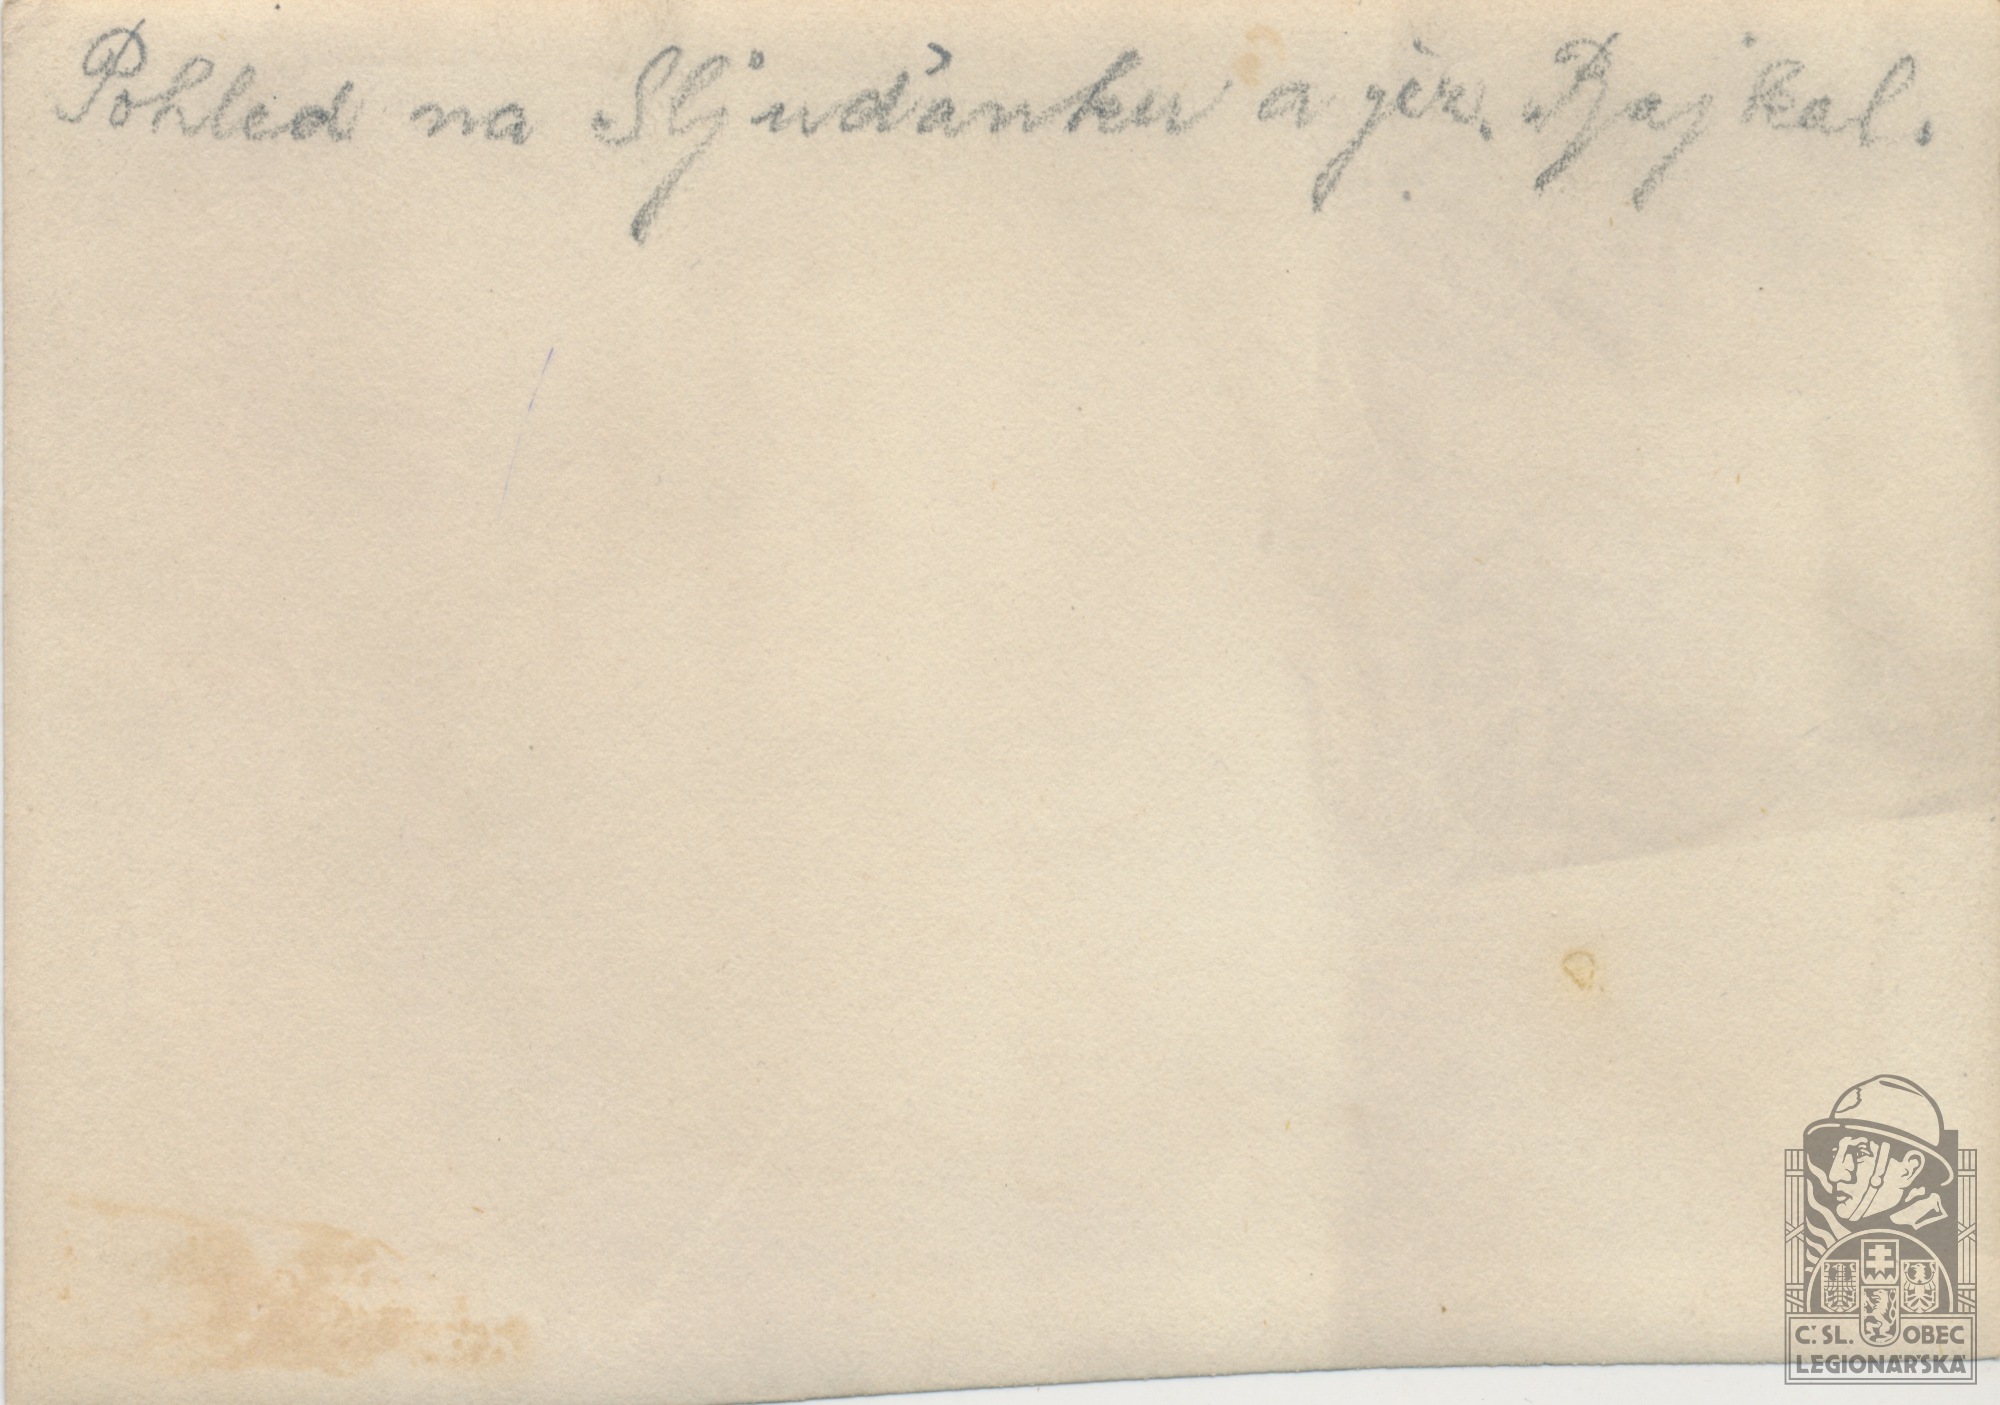 Pohled na Sljuďanku a jez. Bajkal.
Č. SL. OBEC
LEGIONÁŘSKÁ